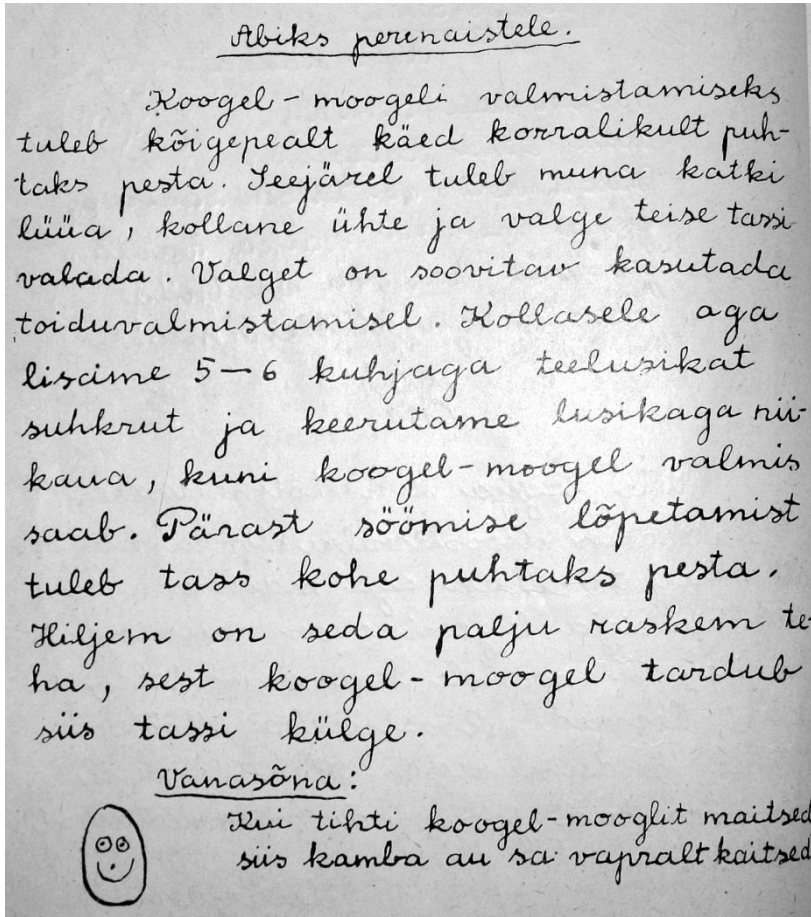 Abiks perenaistele.
Koogel-moogeli valmistamiseks
tuleb kõigepealt käed korralikult puh-
taks pesta. Seejärel tuleb muna katki
lüüa, kollane ühte ja valge teise tassi
valada. Valget on soovitav kasutada
toiduvalmistamisel. Kollasele aga
lisame 5-6 kuhjaga teelusikat
suhkrut ja keerutame lusikaga nii-
kaua, kuni koogel-moogel valmis
saab. Pärast söömise lõpetamist
tuleb tass kohe puhtaks pesta.
Hiljem on seda palju raskem te-
ha, sest koogel-moogel tardub
siis tassi külge.
Vanasõna:
Kui tihti koogel-mooglit maitsed
siis kamba au sa vapralt kaitsed